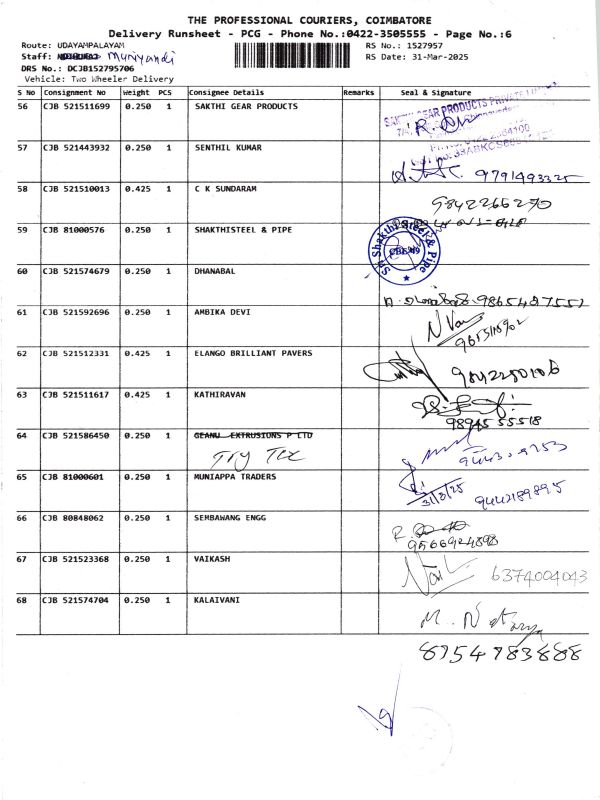 THE PROFESSIONAL COURIERS, COIMBATORE
Delivery Runsheet - PCG - Phone No.:0422-3505555 - Page No.:6
Route: UDAYAMPALAYAM RS No.: 1527957
Staff: Muniyandi RS Date: 31-Mar-2025
DRS No.: DCJB152795706
Vehicle: Two Wheeler Delivery
S No Consignment No Weight PCS Consignee Details Remarks Seal & Signature
56 CJB 521511699 0.250 1 SAKTHI GEAR PRODUCTS
SAKTHI GEAR PRODUCTS PRIVATE
57 CJB 521443932 0.250 1 SENTHIL KUMAR
9791493325
58 CJB 521510013 0.425 1 C K SUNDARAM 9842266270
59 CJB 81000576 0.250 1 SHAKTHISTEEL & PIPE
Sri Shakthi Steel & Pipe
60 CJB 521574679 0.250 1 DHANABAL
61 CJB 521592696 0.250 1 AMBIKA DEVI
62 CJB 521512331 0.425 1 ELANGO BRILLIANT PAVERS
63 CJB 521511617 0.425 1 KATHIRAVAN
9894555518
64 CJB 521586450 0.250 1 GEANU EXTRUSIONS P LTD
Try Tex
65 CJB 81000601 0.250 1 MUNIAPPA TRADERS
31/3/25 9442189895
66 CJB 80848062 0.250 1 SEMBAWANG ENGG
9566924898
67 CJB 521523368 0.250 1 VAIKASH
6374004043
68 CJB 521574704 0.250 1 KALAIVANI
8754783888